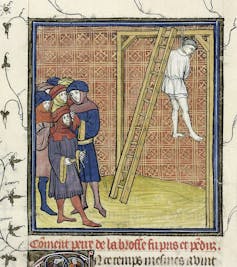 Coment pierre de la brosse fu pris et pendu.
En ce temps meismes avint